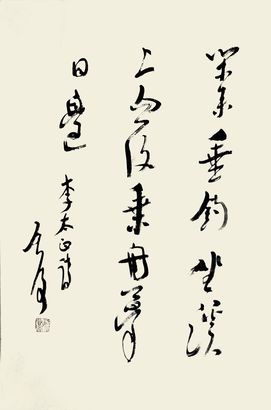 閒来垂釣坐溪
上忽復乗舟夢
日邊
李太白詩